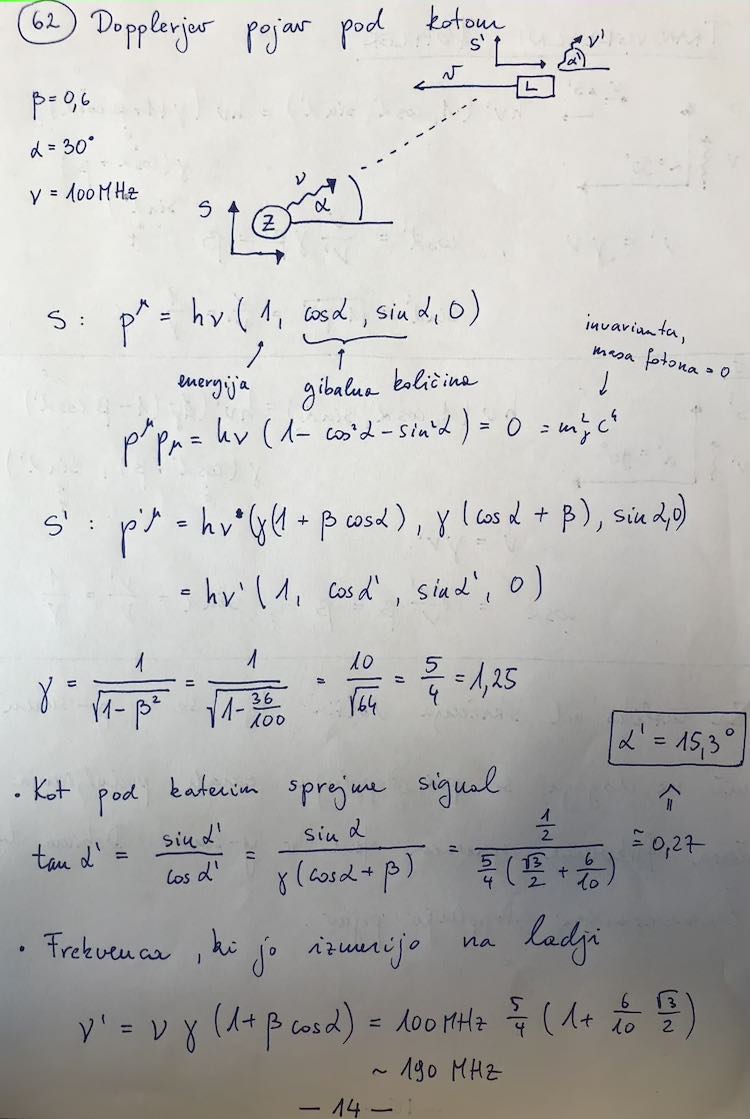 62 Dopplerjev pojav pod kotom
S' ν' α'
v L
β = 0,6
α = 30°
ν = 100 MHz
S Z ν α
S : p^μ = hν (1, cosα, sinα, 0)
energija gibalna količina
invarianta,
masa fotona = 0
p^μ p_μ = hν (1 - cos²α - sin²α) = 0 = m_γ² c⁴
S' : p'^μ = hν (γ(1 + β cosα), γ (cosα + β), sinα, 0)
= hν' (1, cosα', sinα', 0)
γ = 1/√(1-β²) = 1/√(1-36/100) = 10/√64 = 5/4 = 1,25
α' = 15,3°
• Kot pod katerim sprejme signal
tan α' = sinα'/cosα' = sinα/γ(cosα + β) = 1/2 / 5/4 (√3/2 + 6/10) ≅ 0,27
• Frekvenca, ki jo izmerijo na ladji
ν' = ν γ (1 + β cosα) = 100 MHz 5/4 (1 + 6/10 √3/2)
~ 190 MHz
- 14 -